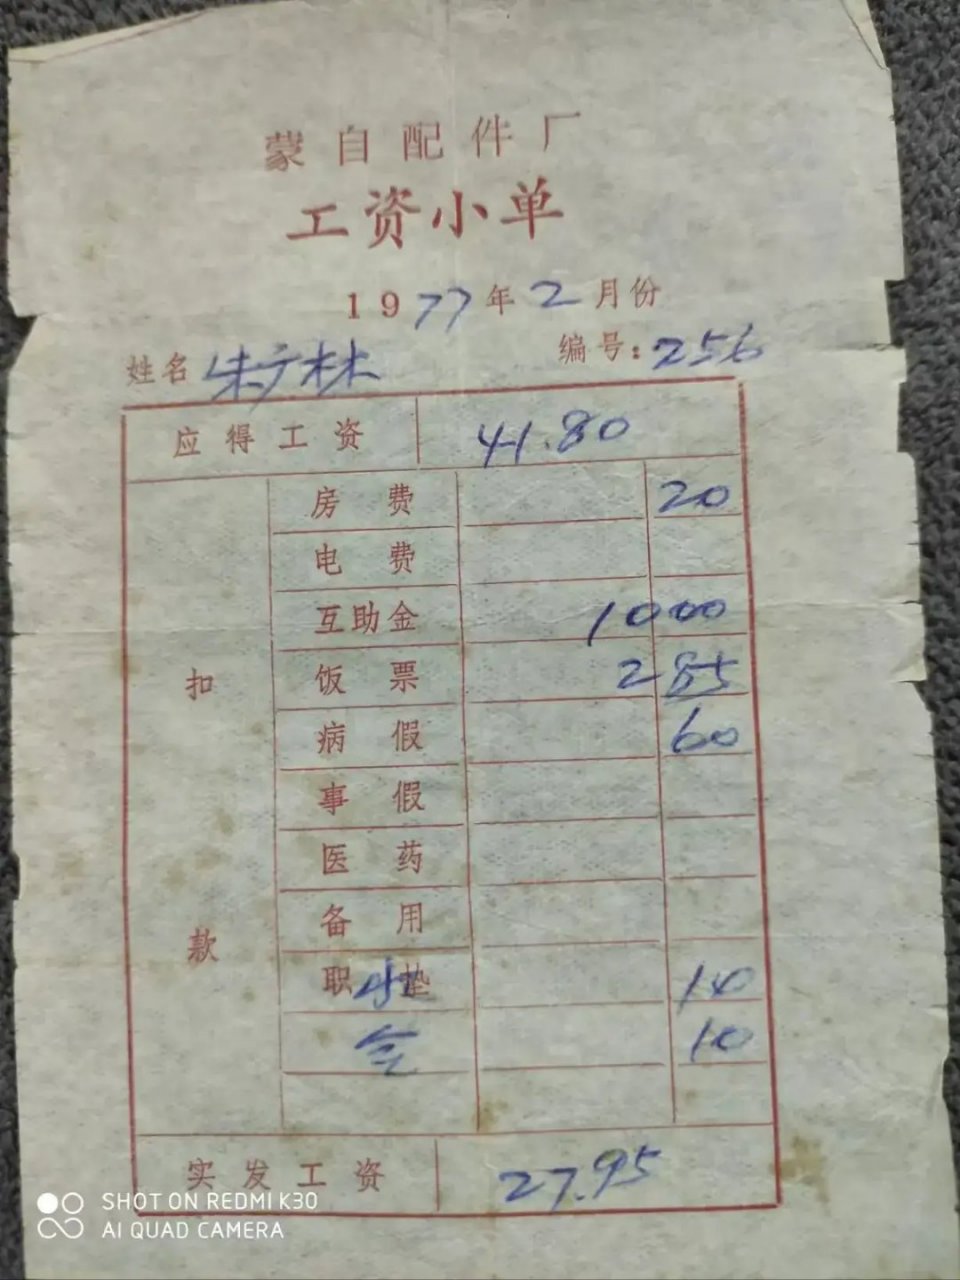 蒙自配件厂
工资小单
1977年2月份
姓名 朱广林 编号：256
应得工资 41.80
扣款
房费 20
电费
互助金 1000
饭票 285
病假 60
事假
医药
备用
职 垫 14
会 10
实发工资 27.95
SHOT ON REDMI K30
AI QUAD CAMERA